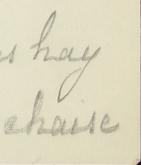 hay
chaise